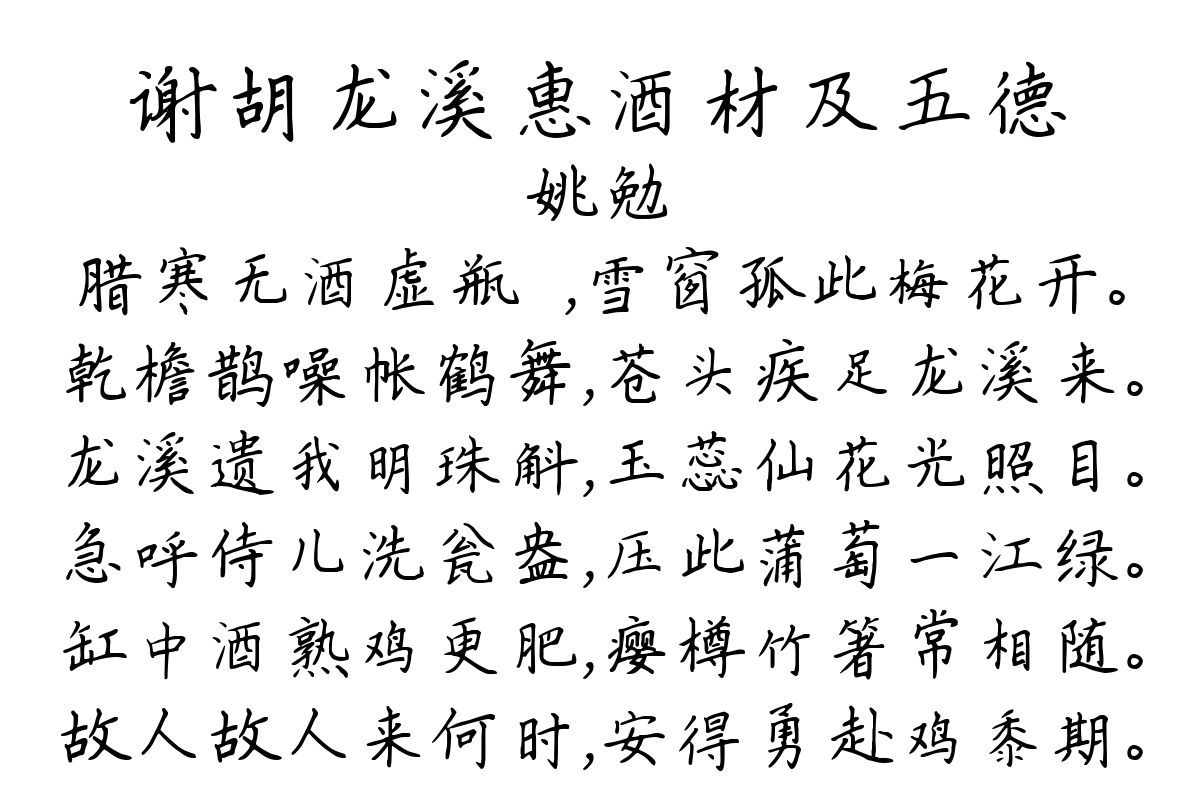 谢胡龙溪惠酒材及五德
姚勉
腊寒无酒虚瓶 ,雪窗孤此梅花开。
乾檐鹊噪帐鹤舞,苍头疾足龙溪来。
龙溪遗我明珠斛,玉蕊仙花光照目。
急呼侍儿洗瓮盎,压此蒲萄一江绿。
缸中酒熟鸡更肥,瘿樽竹箸常相随。
故人故人来何时,安得勇赴鸡黍期。